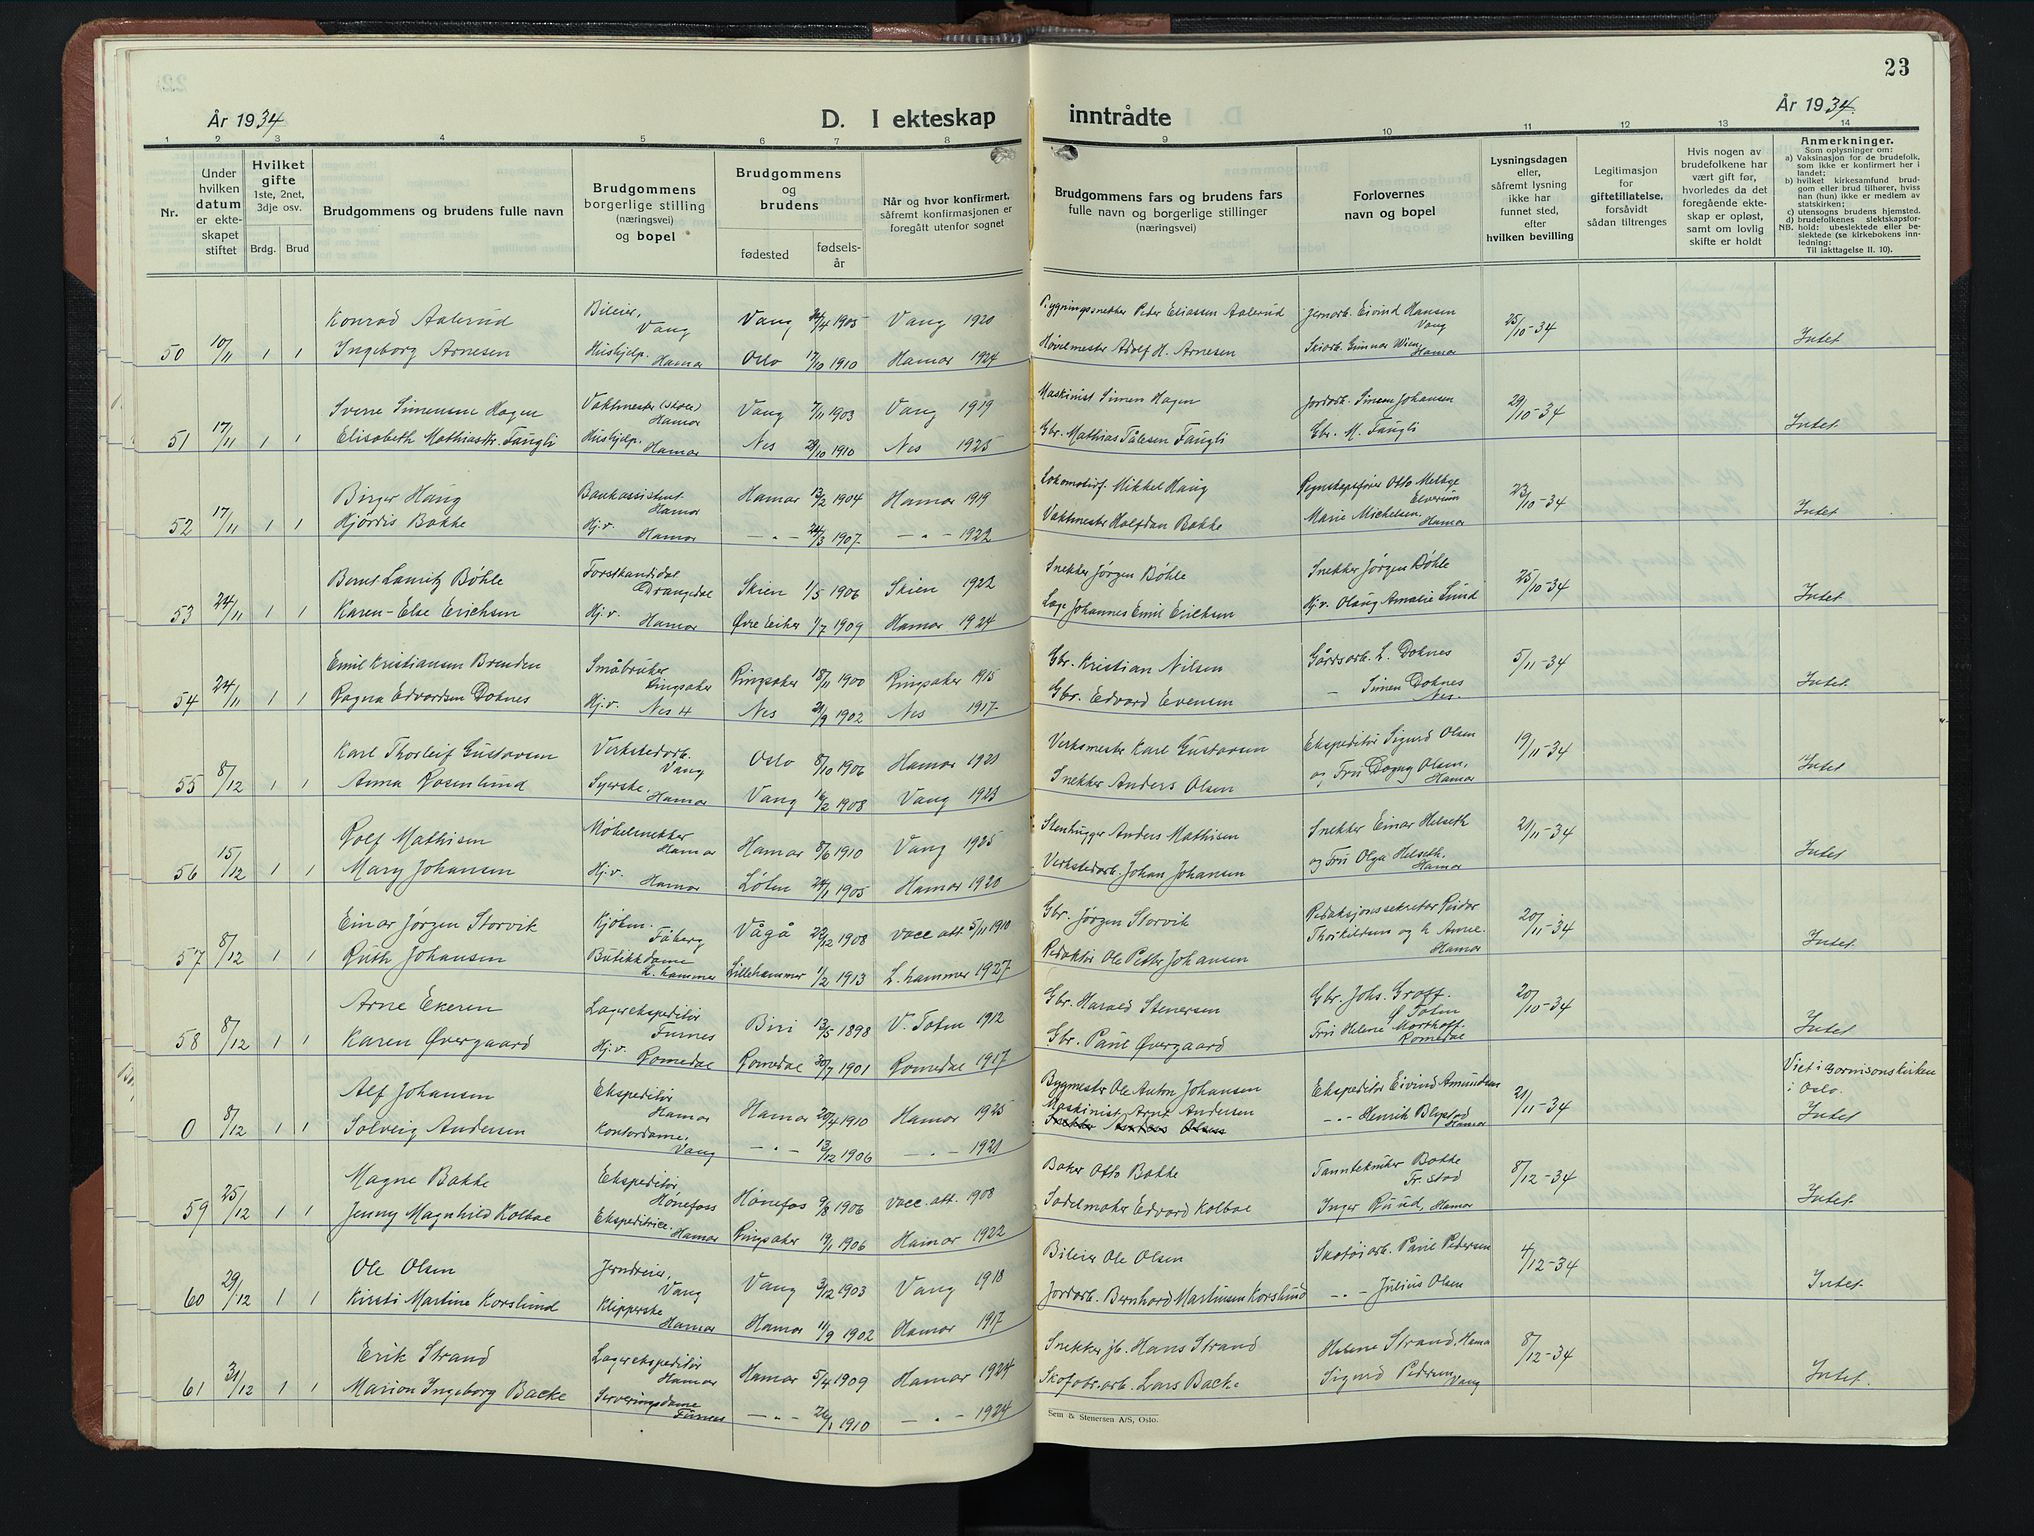 23
År 1934
D. I ekteskap
inntrådte
År 1934.
1 2 3 4 5 6 7 8 9 10 11 12 13 14
Nr.
Under
hvilken
datum
er ekte-
skapet
stiftet
Hvilket
gifte
1ste, 2net,
3dje osv.
Brdg. Brud
Brudgommens og brudens fulle navn
Brudgommens
borgerlige stilling
(næringsvei)
og bopel
Brudgommens
og
brudens
fødested
fødsels-
år
Når og hvor konfirmert,
såfremt konfirmasjonen er
foregått utenfor sognet
Brudgommens fars og brudens fars
fulle navn og borgerlige stillinger
(næringsvei)
Forlovernes
navn og bopel
Lysningsdagen
eller,
såfremt lysning
ikke har
funnet sted,
efter
hvilken bevilling
Legitimasjon
for
giftetillatelse,
forsåvidt
sådan tiltrenges
Hvis nogen av
brudefolkene har
vært gift før,
hvorledes da det
foregående ekte-
skap er opløst,
samt om lovlig
skifte er holdt
Anmerkninger.
Som oplysninger om:
a) Vaksinasjon for de brudefolk,
som ikke er konfirmert her i
landet;
b) hvilket kirkesamfund brud-
gom eller brud tilhører, hviss
han (hun) ikke er medlem av
statskirken;
c) utensogns brudens hjemsted.
d) brudefolkenes slektskapsfor-
NB. hold: ubeslektede eller be-
slektede (se kirkebokens inn-
ledning:
Til Iakttagelse II. 10).
Konrad Aalerud Bileier, Vang Vang 26/4 1905 Vang 1920 Bygningssnekker Peter Eliassen Aalerud Jernarb. Eivind Hansen Vang 25/10-34
50 10/11 1 1 Ingeborg Arnesen Hushjelp. Hamar Oslo 17/10 1910 Hamar 1924 Høvelmester Adolf H. Arnesen Skiarb. Gunnar Wien, Hamar Intet
Sverre Simensen Hagen Vaktmester (skole) Hamar Vang 7/11 1903 Vang 1919 Maskinist Simen Hagen Jordarb. Simen Johansen 29/10-34
51 17/11 1 1 Elisabeth Mathiasdr. Faugli Hushjelp. Hamar Nes 28/10 1910 Nes 1925 Gbr. Mathias Pålesen Faugli Gbr. M. Faugli Intet.
Birger Haug Bankassistent Hamar Hamar 13/2 1904 Hamar 1919 Lokomotivf. Mikkel Haug Regnskapsfører Otto Melbye Elverum 23/10-34
52 17/11 1 1 Hjördis Bakke Hj.v. Hamar — " — 24/3 1907 — " — 1922 Vaktmester Halfdan Bakke Marie Michelsen, Hamar Intet
Bernt Lauritz Bøhle Forstkandidat Drangedal Skien 1/5 1906 Skien 1922 Snekker Jörgen Bøhle Snekker Jörgen Bøhle 25/10-34
53 24/11 1 1 Karen-Else Erichsen Hj.v. Hamar Øvre Eiker 1/7 1909 Hamar 1924 Læge Johannes Emil Erichsen Hj.v. Olaug Amalie Lund Intet
Emil Kristiansen Brenden Småbruker Ringsaker Ringsaker 18/11 1900 Ringsaker 1915 Gbr. Kristian Nilsen Gårdsarb. L. Doknes 5/11-34
54 24/11 1 1 Ragna Edvardsen Doknes Hj.v. Nes H Nes 21/9 1902 Nes 1917 Gbr. Edvard Evensen — Simen Doknes Nes. Intet
Karl Thorleif Gustavsen Verkstedarb. Vang Oslo 8/10 1906 Hamar 1921 Verksmester Karl Gustavsen Ekspeditör Sigurd Olsen 19/11-34
55 8/12 1 1 Anna Rosenlund Syerske. Hamar Vang 16/2 1908 Vang 1923 Snekker Anders Olsen og Fru Dagny Olsen, Hamar Intet
Rolf Mathisen Møbelsnekker Hamar Hamar 8/6 1910 Vang 1925 Stenhugger Anders Mathisen Snekker Einar Helseth 21/11-34
56 15/12 1 1 Mary Johansen Hj.v. Hamar Løten 24/1 1905 Hamar 1920 Verkstedarb. Johan Johansen og Fru Olga Helseth. Hamar Intet
Einar Jørgen Storvik Kjøbm. Fåberg Vågå 22/12 1908 vacc att. 5/11 1910 Gbr. Jörgen Storvik Redaksjonssekretær Reidar 20/11-34
57 8/12 1 1 Ruth Johansen Butikkdame L.hammer Lillehammer 11/2 1913 L.hammer 1927 Redaktör Ole Petter Johansen Thorkildsen og h Anne. Hamar Intet.
Arne Ekeren Lagerekspeditör Furnes Biri 13/5 1898 V. Toten 1912 Gbr. Harald Stenersen Gbr. Johs. Groff. Ø Toten 20/10-34
58 8/12 1 1 Karen Øvergaard Hj.v. Romedal Romedal 30/7 1901 Romedal 1917 Gbr. Paul Øvergaard Fru Helene Morthoff. Romedal Intet
Viet i Garnisonskirken
i Oslo.
Alf Johansen Ekspeditör Hamar Hamar 20/4 1910 Hamar 1925 Bygmester Ole Anton Johansen Ekspeditör Eivind Amundsen 21/11-34
Maskinist, Arne Andersen
0 8/12 1 1 Solveig Andersen Kontordame, Vang — " — 13/12 1906 — " — 1921 Snekker Anders Olsen — " — Henrik Blystad Hamar Intet
Magne Bakke Ekspeditör Hönefoss Hönefos 9/8 1906 vacc. att. 1908 Baker Otto Bakke Tanntekniker Bakke Fr. stad 8/12-34
59 25/12 1 1 Jenny Magnhild Kolbae Ekspeditrice. Hamar Ringsaker 19/1 1906 Hamar 1922 Sadelmaker Edvard Kolbae Inger Ruud, Hamar Intet
Ole Olsen Jerndreier, Vang Vang 3/12 1903 Vang 1918 Bileier Ole Olsen Skotöiarb. Paul Pedersen 4/12-34
60 29/12 1 1 Kirsti Martine Korslund Klipperske Hamar Hamar 11/9 1902 Hamar 1917 Jordarb. Bernhard Martinsen Korslund — " — Julius Olsen Intet
Erik Strand Lagerekspeditör Hamar Hamar 5/4 1909 Hamar 1924 Snekker jb. Hans Strand Helene Strand, Hamar 8/12-34
61 31/12 1 1 Marion Ingeborg Backe Serveringsdame Furnes — " — 26/1 1910 — " — 1924 Skofabr.arb. Lars Backe Sigurd Pedersen Vang Intet.
Sem & Stenersen A/S, Oslo.